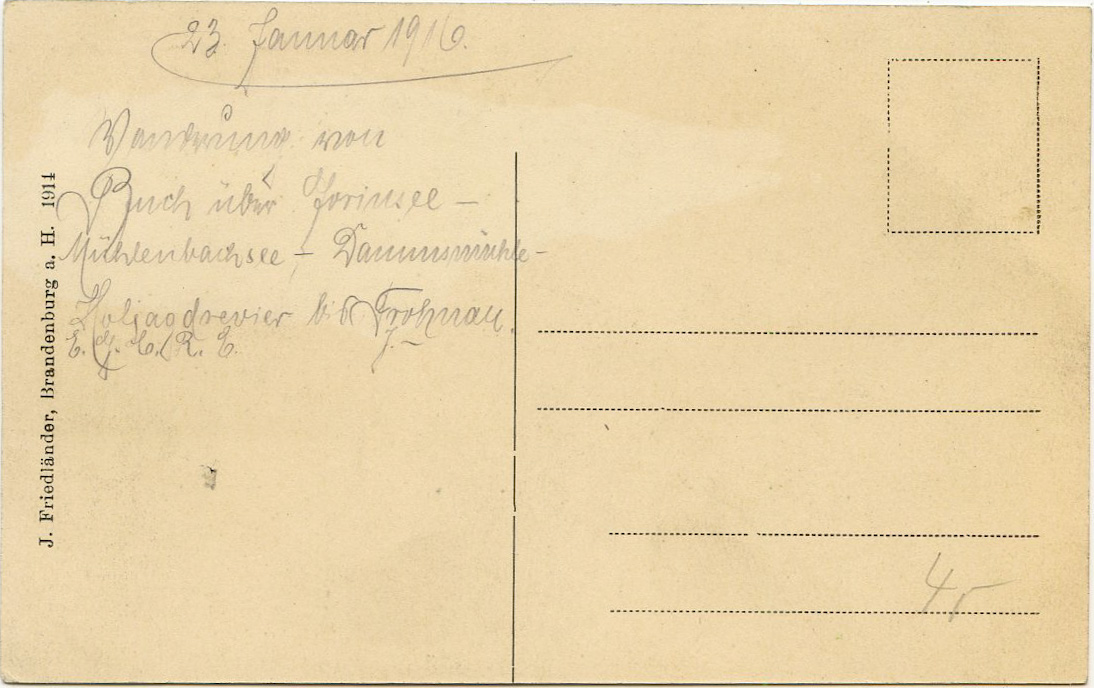 23. Januar 1916.
Wandrung von
Buch über Gorinsee –
Mühlenbecksee – Dammsmühle –
Hofjagdrevier bis Frohnau.
J. Friedländer, Brandenburg a. H. 1914